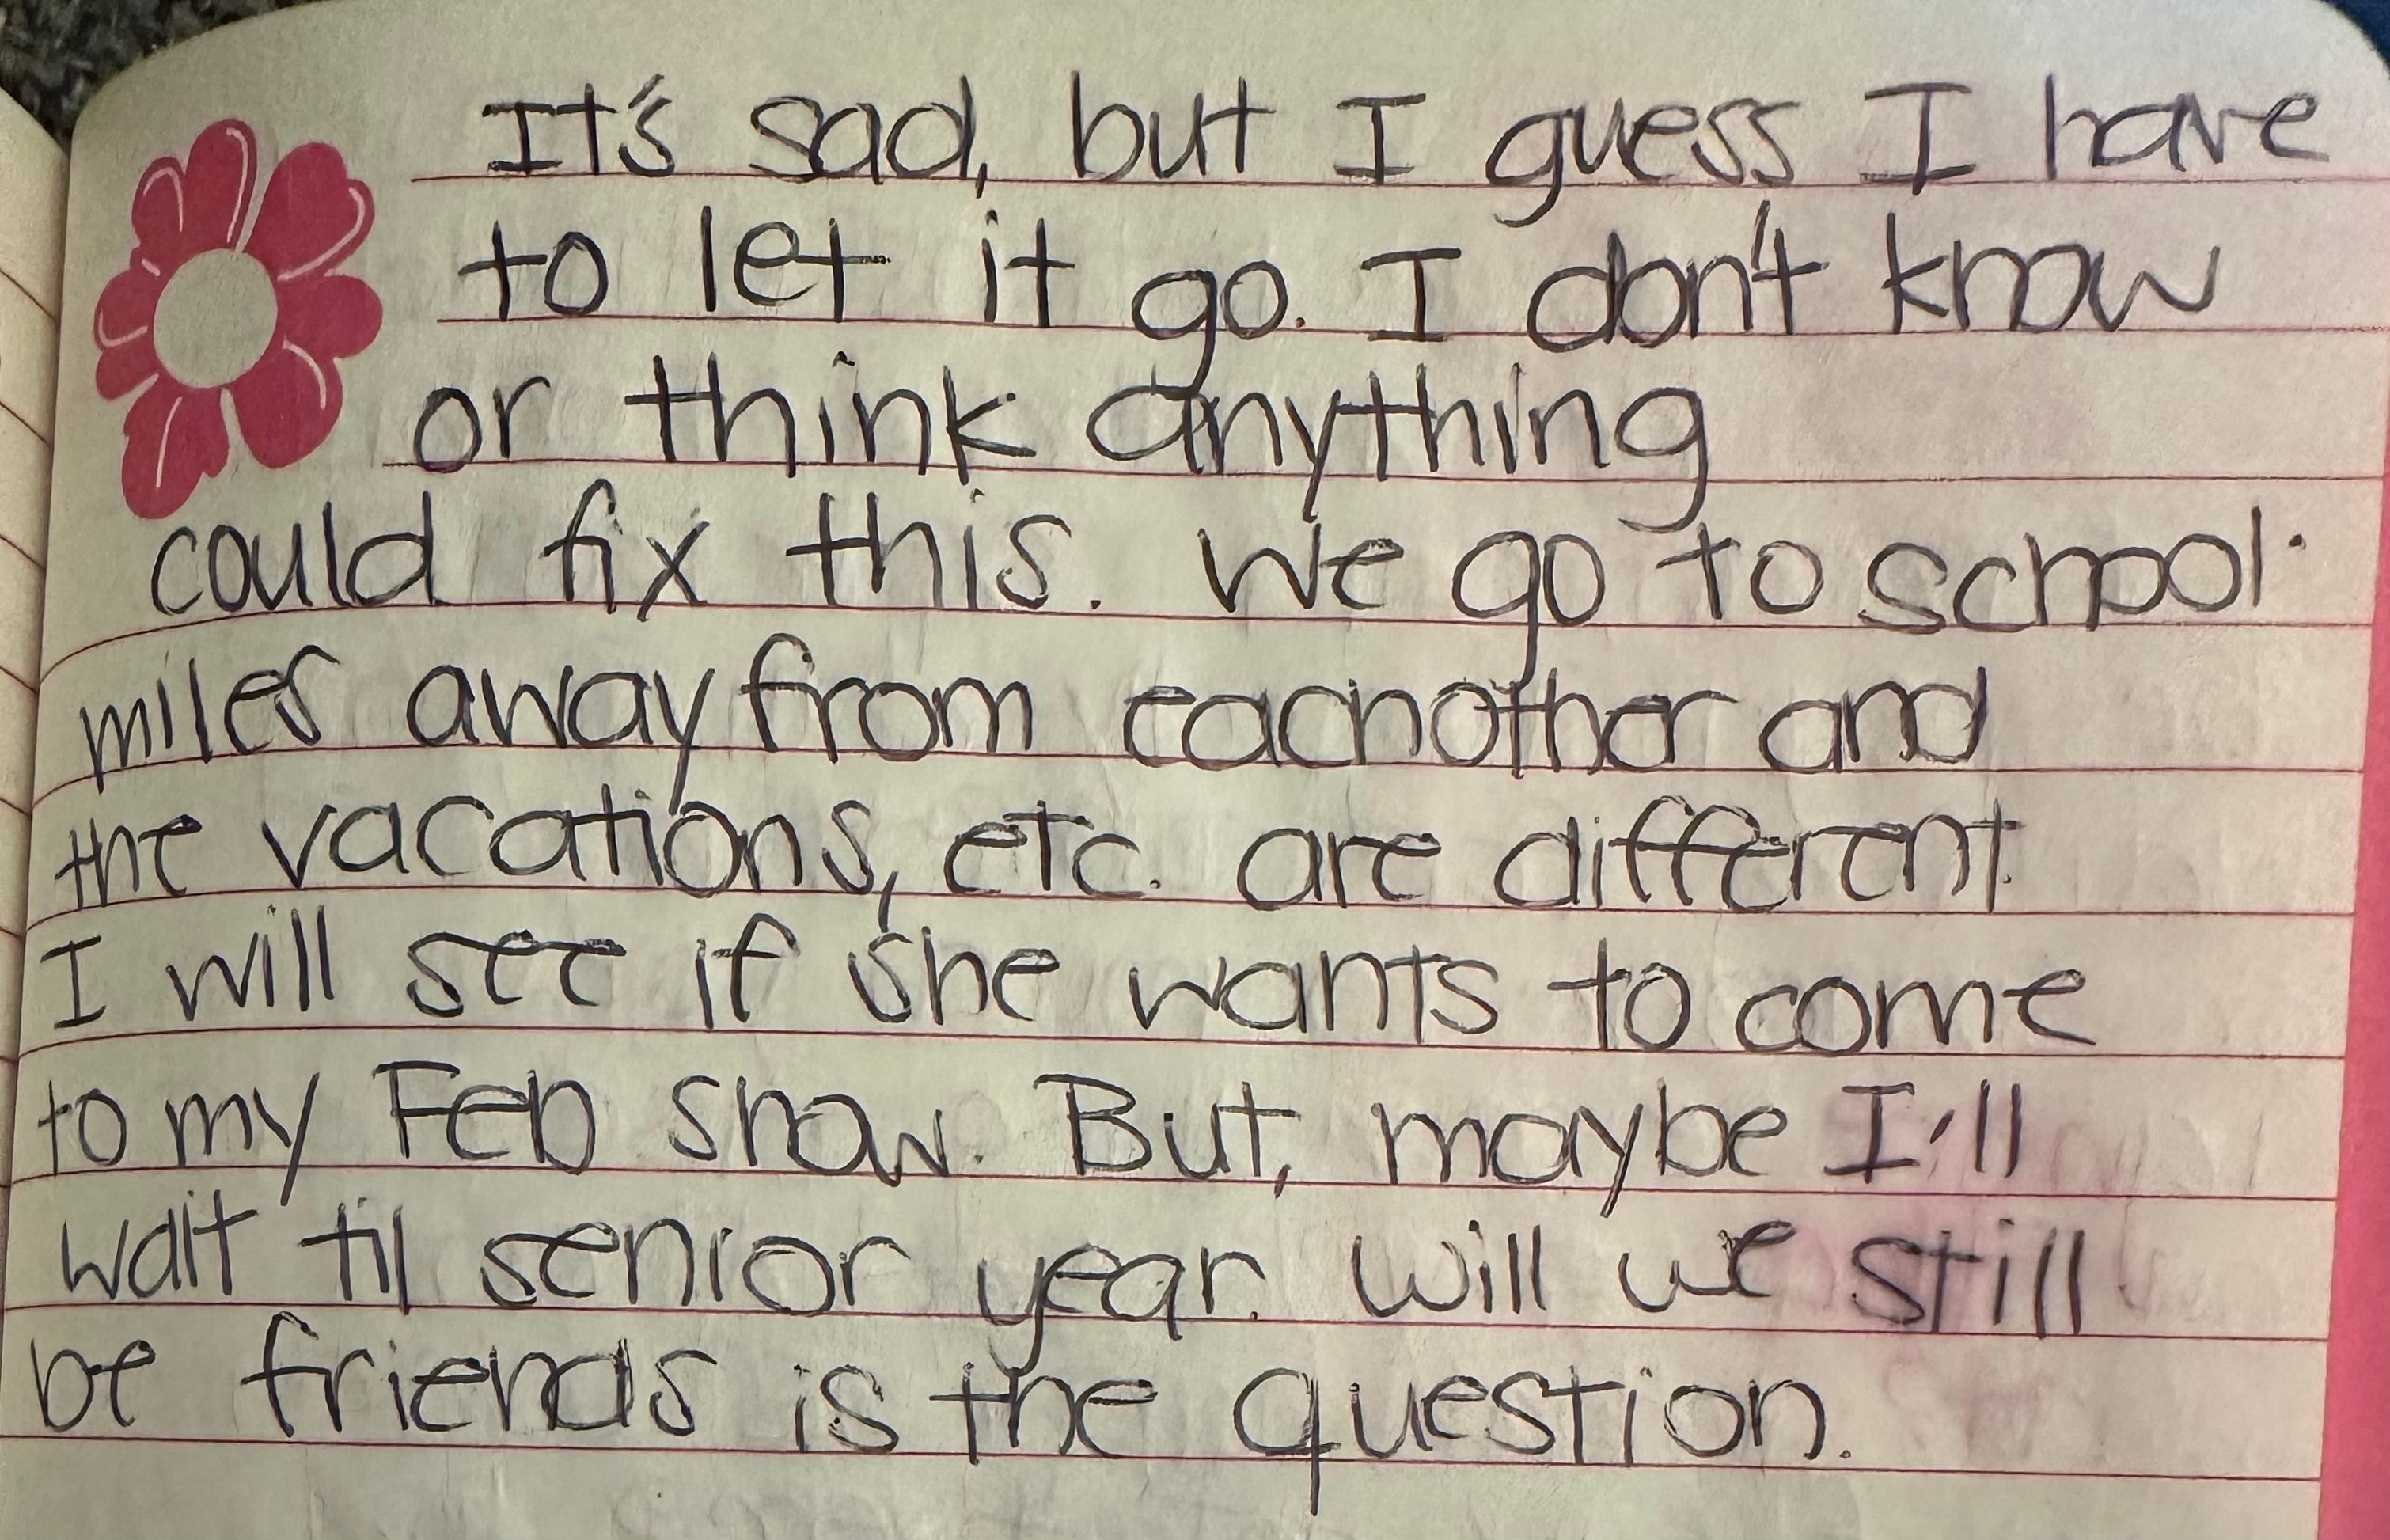 It's sad, but I guess I have
to let it go. I don't know
or think anything
could fix this. We go to school
miles away from eachother and
the vacations, etc. are different.
I will see if she wants to come
to my Feb show. But, maybe I'll
wait til senior year. Will we still
be friends is the question.